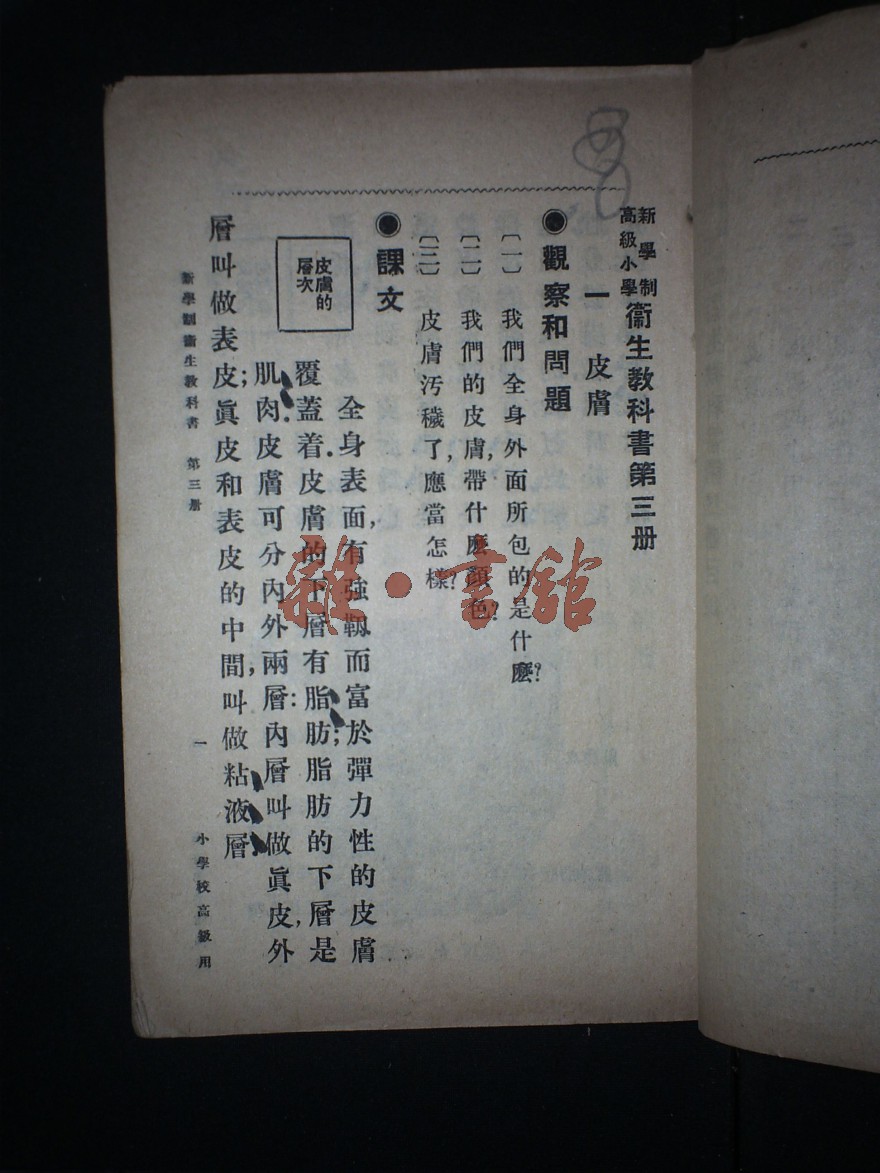 新學制
高級小學
衞生教科書第三册
一 皮膚
●觀察和問題
〔一〕我們全身外面所包的是什麽?
〔二〕我們的皮膚,帶什麽顏色?
〔三〕皮膚汚穢了,應當怎樣?
●課文
皮膚的
層次
全身表面,有強韌而富於彈力性的皮膚
覆蓋着.皮膚的下層有脂肪;脂肪的下層是
肌肉.皮膚可分內外兩層:內層叫做眞皮,外
層叫做表皮;眞皮和表皮的中間,叫做粘液層
新學制衞生教科書 第三册
一
小學校高級用
雜·書館
80